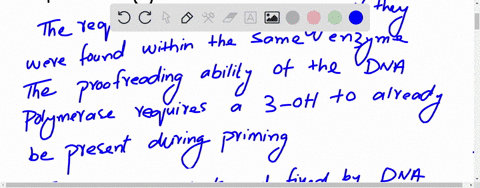 The req they
were found within the same enzyme
The proofreading ability of the DNA
Polymerase requires a 3-OH to already
be present during priming
fixed by DNA